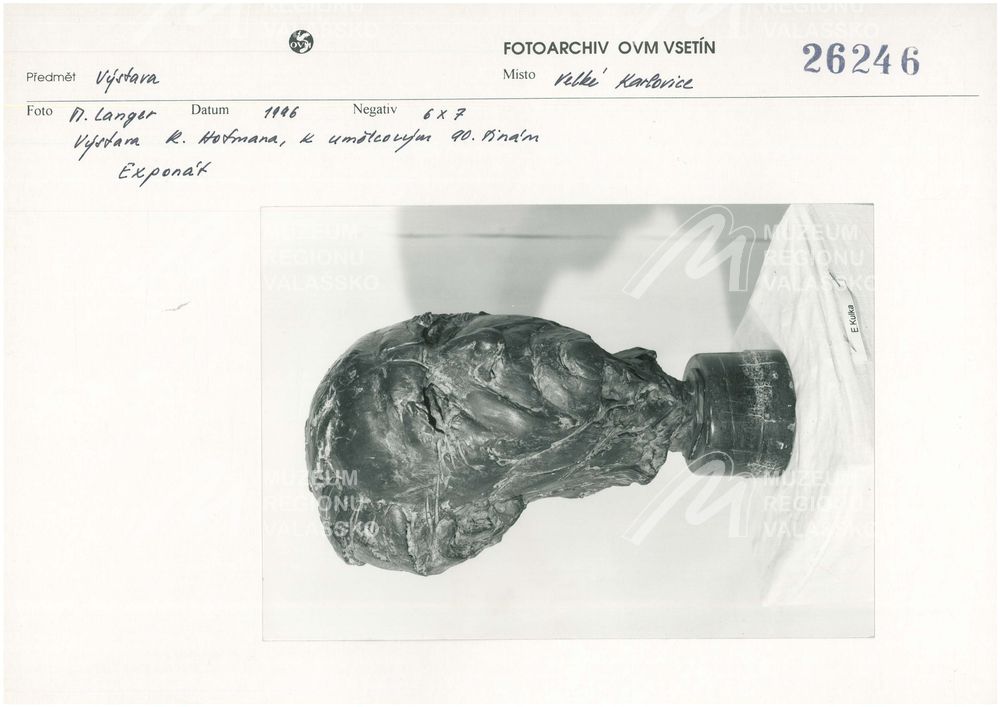 OVM
FOTOARCHIV OVM VSETÍN
26246
Předmět Výstava
Místo Velké Karlovice
Foto M. Langer Datum 1996 Negativ 6x7
Výstava K. Hofmana, k umělcovým 90. tinám
Exponát
E.Kulka
MUZEUM
REGIONU
VALAŠSKO
MUZEUM
REGIONU
VALAŠSKO
MUZEUM
REGIONU
VALAŠSKO
MUZEUM
REGIONU
VALAŠSKO